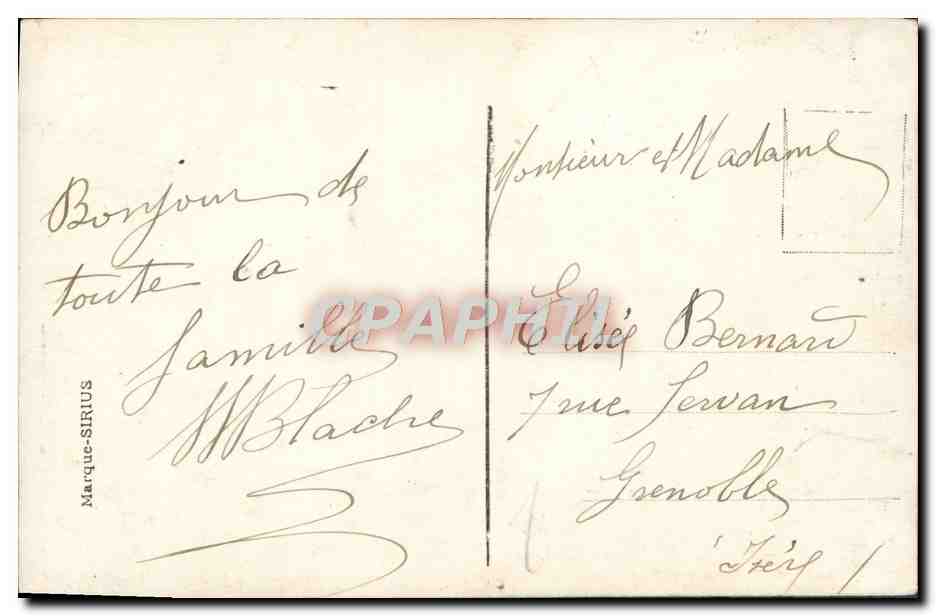 Bonjour de
toute la
famille
Blache
Marque-SIRIUS
Monsieur et Madame
Elisée Bernard
7 rue Servan
Grenoble
Isère
CPAPHIL